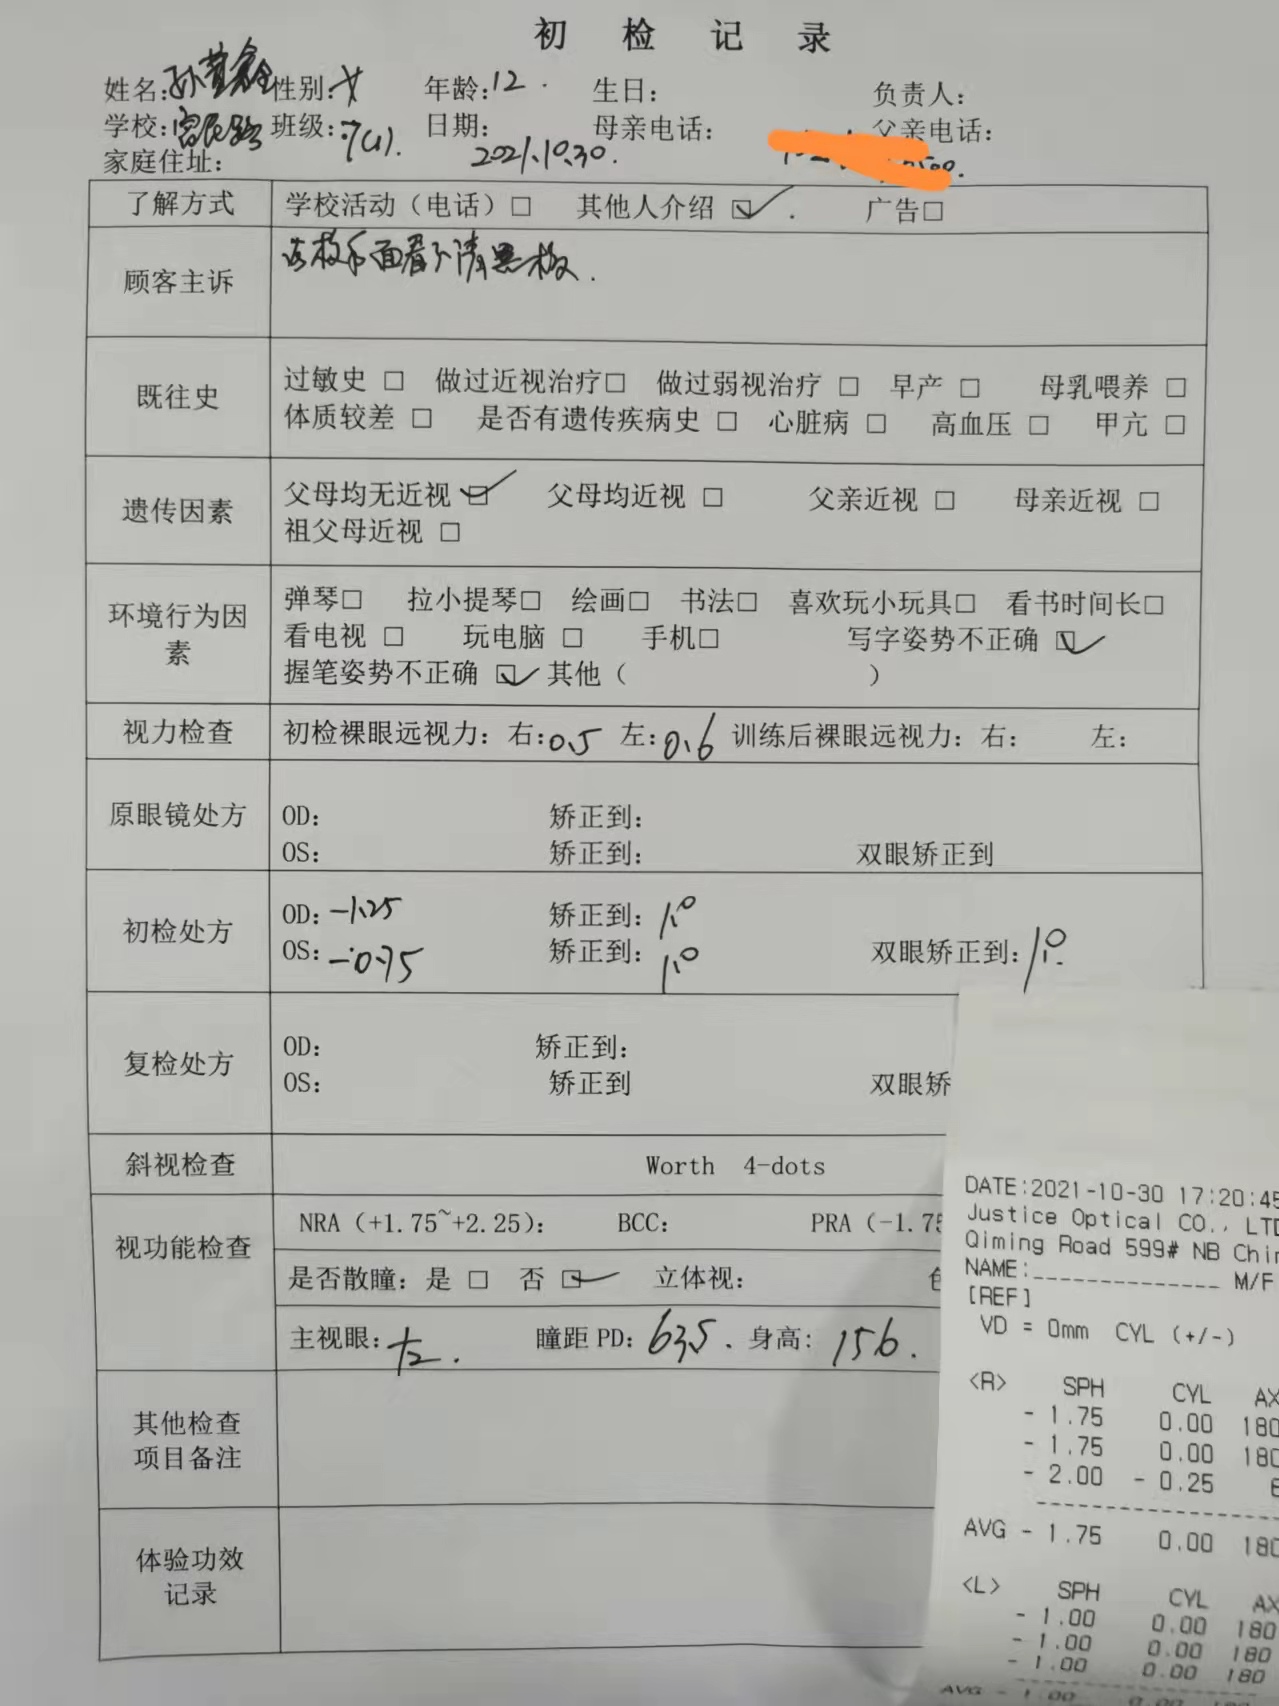 初 检 记 录
姓名: 性别:女 年龄:12. 生日: 负责人:
学校: 班级:7(1). 日期: 母亲电话: 父亲电话:
家庭住址: 2021.10.30.
了解方式 学校活动（电话）□ 其他人介绍 ☑. 广告□
顾客主诉 看不清黑板.
既往史 过敏史 □ 做过近视治疗□ 做过弱视治疗 □ 早产 □ 母乳喂养 □
体质较差 □ 是否有遗传疾病史 □ 心脏病 □ 高血压 □ 甲亢 □
遗传因素 父母均无近视 ☑ 父母均近视 □ 父亲近视 □ 母亲近视 □
祖父母近视 □
环境行为因素 弹琴□ 拉小提琴□ 绘画□ 书法□ 喜欢玩小玩具□ 看书时间长□
看电视 □ 玩电脑 □ 手机□ 写字姿势不正确 ☑
握笔姿势不正确 ☑ 其他（ ）
视力检查 初检裸眼远视力: 右:0.5 左:0.6 训练后裸眼远视力: 右: 左:
原眼镜处方 OD: 矫正到:
OS: 矫正到: 双眼矫正到
初检处方 OD: -1.25 矫正到: 1.0
OS: -0.75 矫正到: 1.0 双眼矫正到: 1.0
复检处方 OD: 矫正到:
OS: 矫正到 双眼矫
斜视检查 Worth 4-dots
视功能检查 NRA（+1.75~+2.25）: BCC: PRA（-1.75
是否散瞳: 是 □ 否 ☑ 立体视:
主视眼:左. 瞳距 PD: 63.5. 身高: 156.
其他检查
项目备注
体验功效
记录
DATE:2021-10-30 17:20:45
Justice Optical CO., LTD
Qiming Road 599# NB Chin
NAME:_____________ M/F
[REF]
VD = 0mm CYL (+/-)
<R> SPH CYL AX
- 1.75 0.00 180
- 1.75 0.00 180
- 2.00 - 0.25
AVG - 1.75 0.00 180
<L> SPH CYL AX
- 1.00 0.00 180
- 1.00 0.00 180
- 1.00 0.00 180
AVG - 1.00 0.00 180